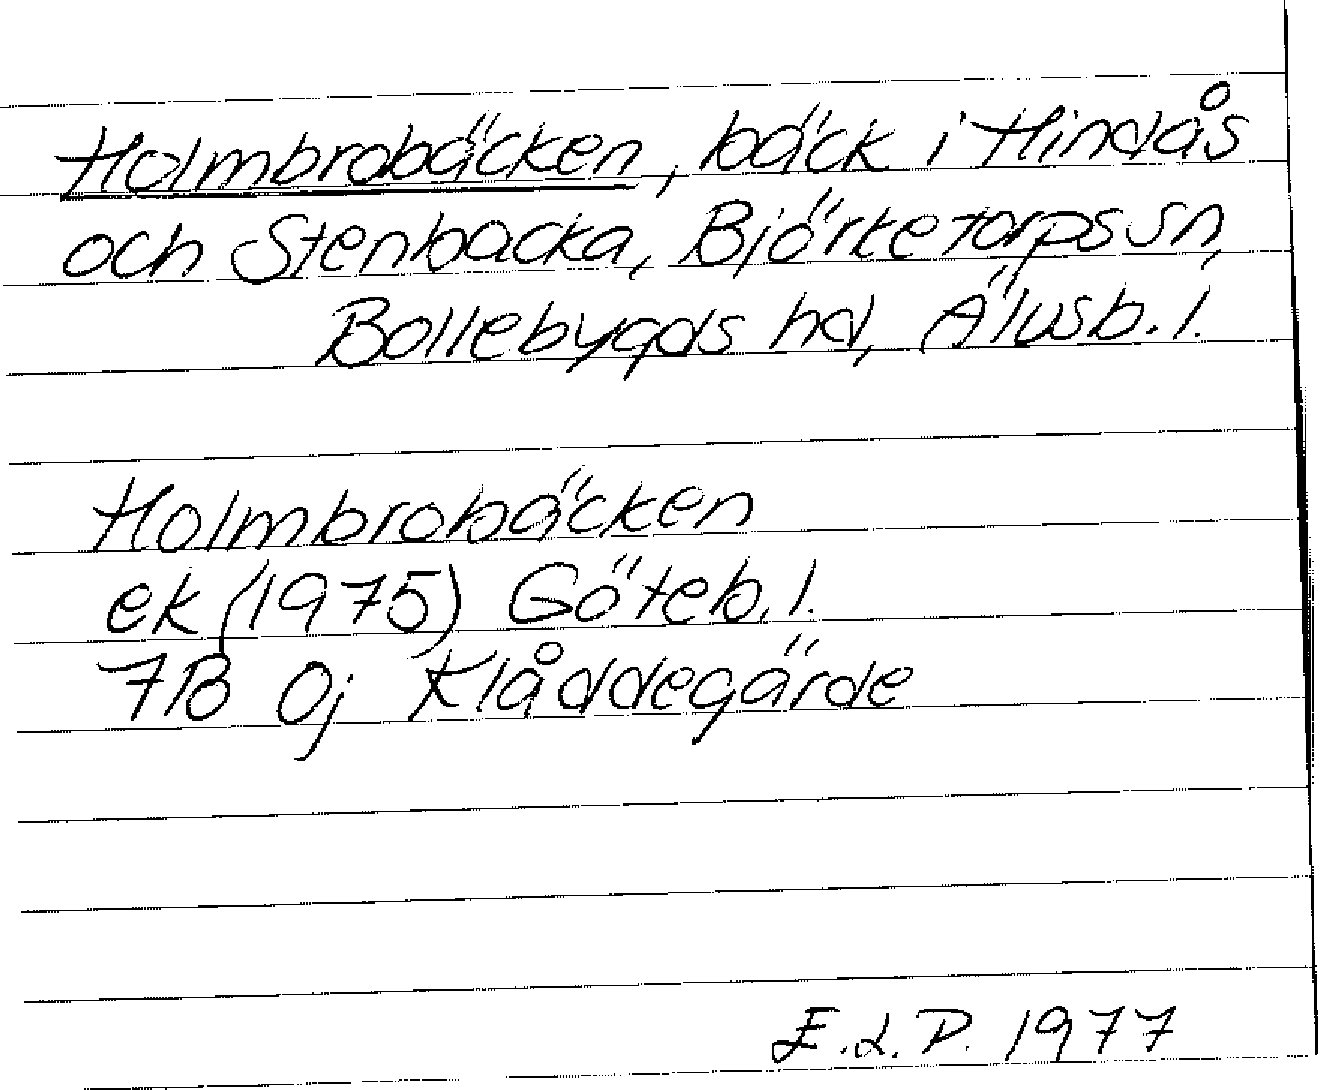 Holmbrobäcken, bäck i Hindås
och Stenbacka, Björketorps sn,
Bollebygds hd, Älvsb. l.
Holmbrobäcken
ek (1975) Göteb. l.
7B 0j Klåddegärde
E.L.P. 1977